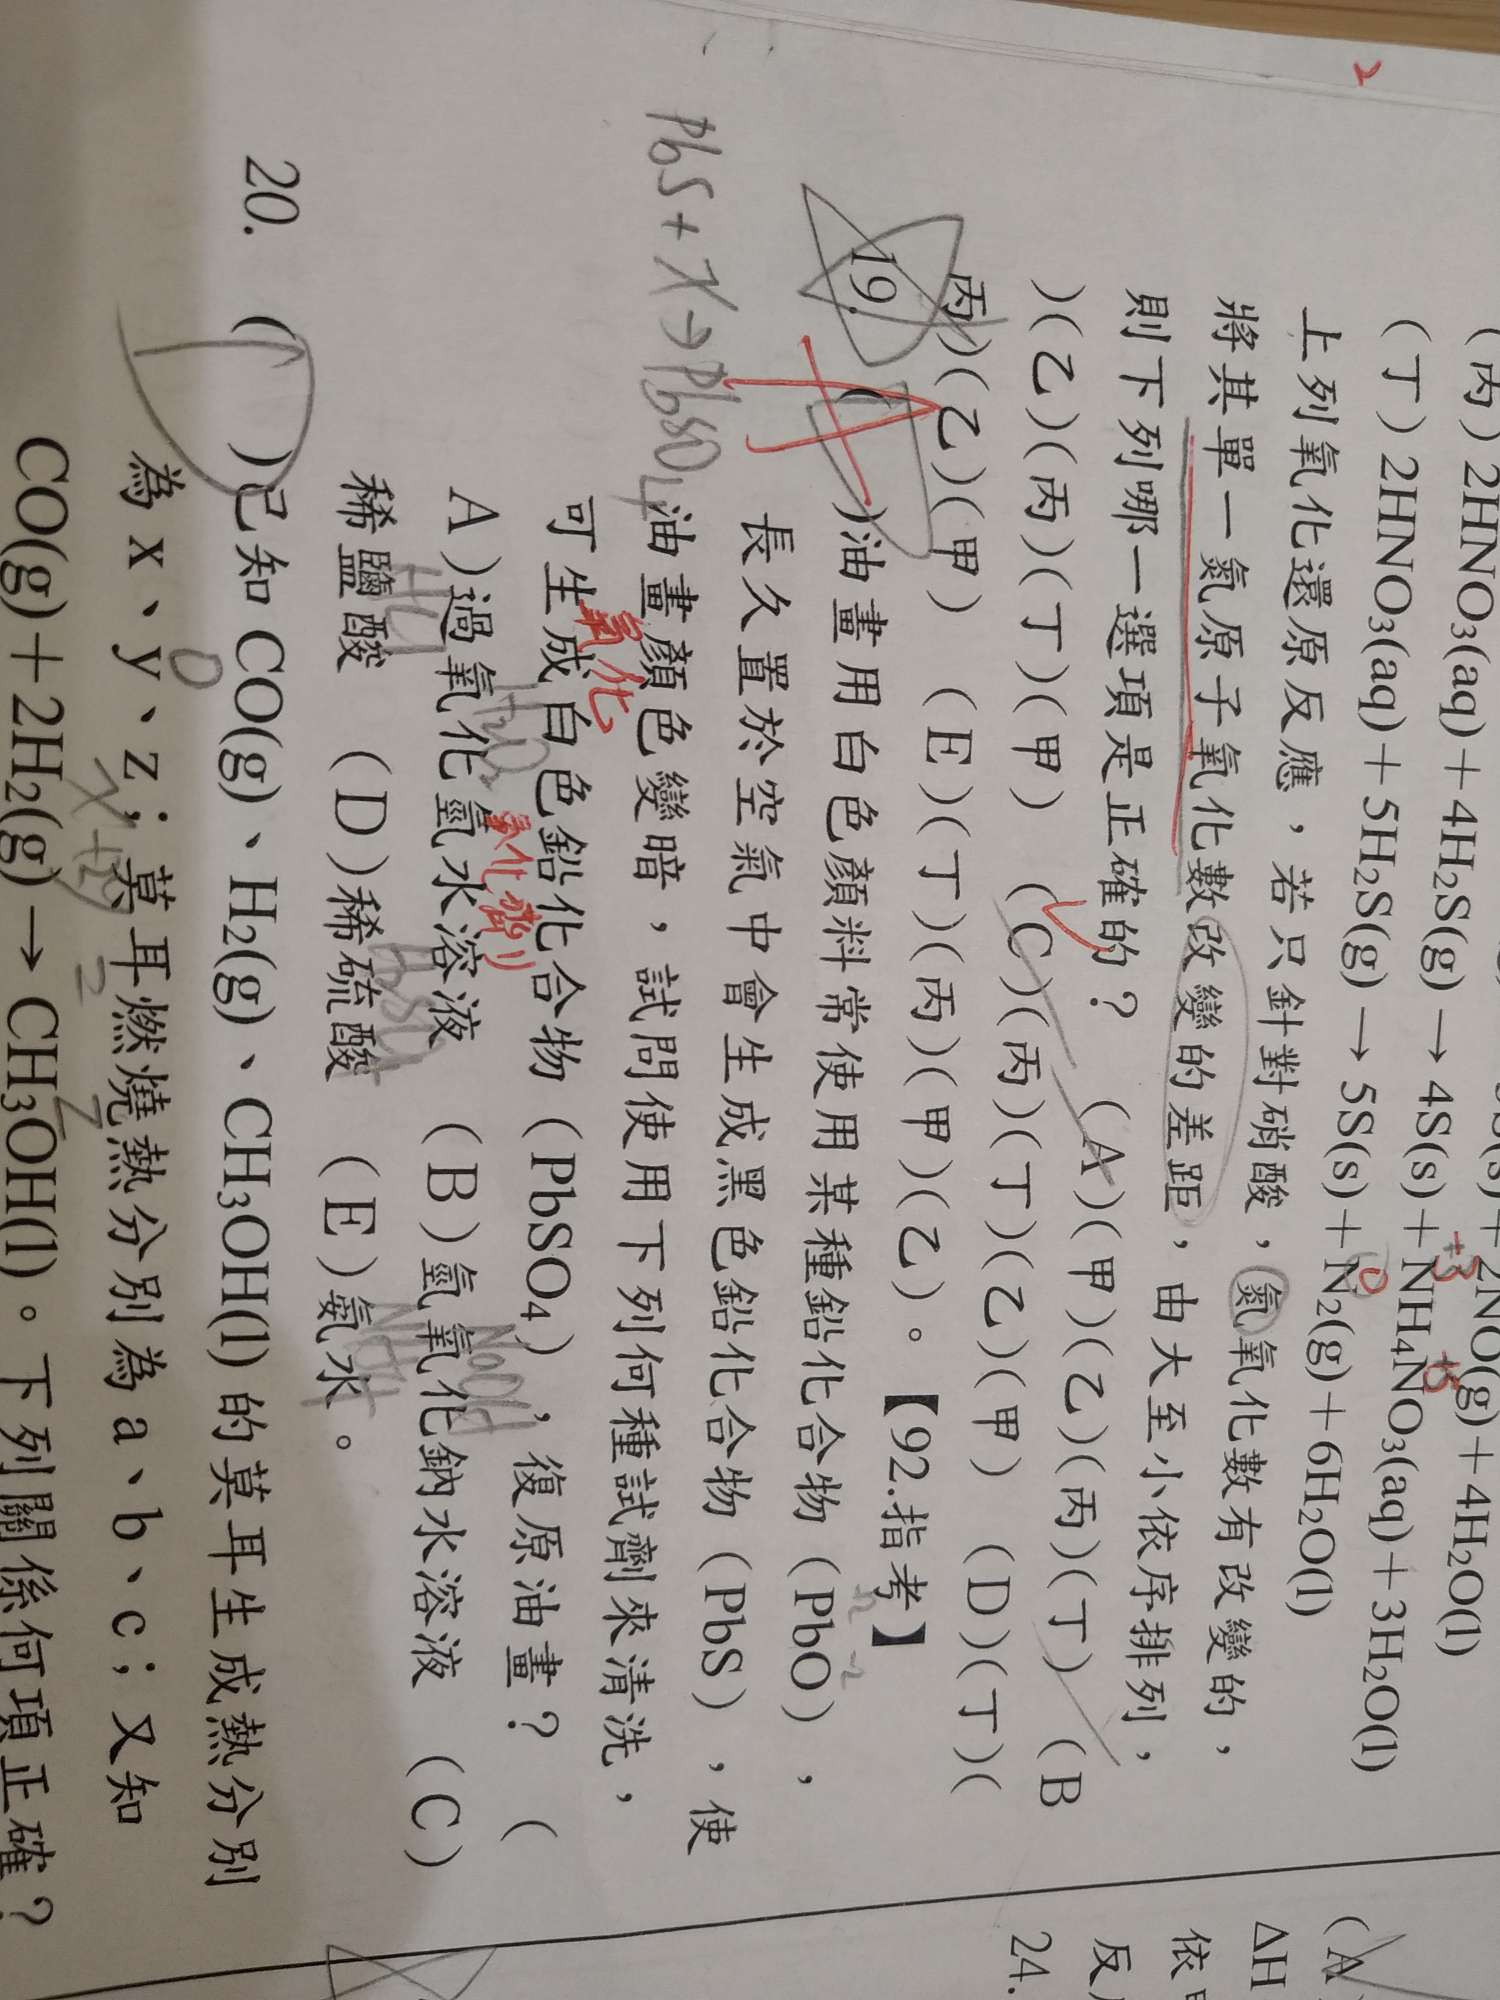 2
(丙) 2HNO3(aq)＋4H2S(g) → 4S(s)＋NH4NO3(aq)＋3H2O(l)
(丁) 2HNO3(aq)＋5H2S(g) → 5S(s)＋N2(g)＋6H2O(l)
上列氧化還原反應，若只針對硝酸，氮氧化數有改變的，
將其單一氮原子氧化數改變的差距，由大至小依序排列，
則下列哪一選項是正確的？ (A)(甲)(乙)(丙)(丁) (B
)(乙)(丙)(丁)(甲) (C)(丙)(丁)(乙)(甲) (D)(丁)(
丙)(乙)(甲) (E)(丁)(丙)(甲)(乙)。【92.指考】
19. ( )油畫用白色顏料常使用某種鉛化合物（PbO），
長久置於空氣中會生成黑色鉛化合物（PbS），使
油畫顏色變暗，試問使用下列何種試劑來清洗，
可生成白色鉛化合物（PbSO4），復原油畫？ (
A)過氧化氫水溶液 (B)氫氧化鈉水溶液 (C)
稀鹽酸 (D)稀硫酸 (E)氨水。
PbS + X → PbSO4
A
氧化
H2O2
氧化劑
NaOH
HCl
H2SO4
+3
+5
0
-2
20. ( )已知 CO(g)、H2(g)、CH3OH(l) 的莫耳生成熱分別
為 x、y、z；莫耳燃燒熱分別為 a、b、c；又知
CO(g)＋2H2(g) → CH3OH(l)。下列關係何項正確？
0
x+2y
=
z
(A
ΔH
反
24.